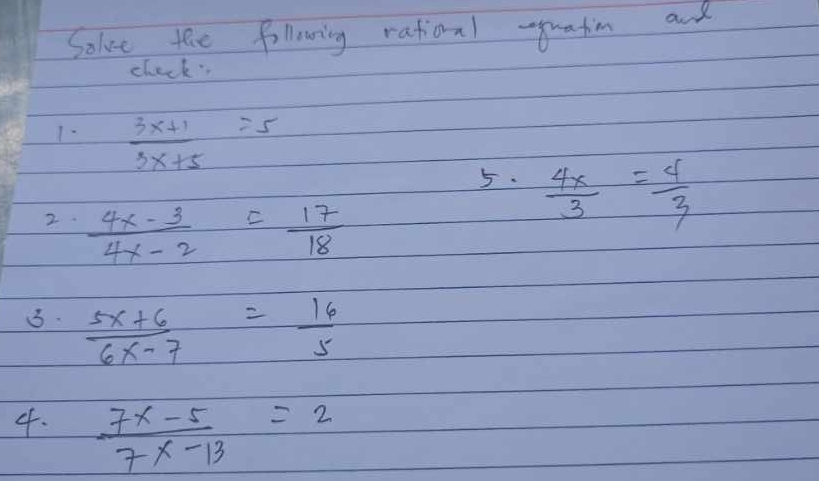 Solve the following rational equation and
check:
1. (3x+1)/(3x+5) = 5
2. (4x-3)/(4x-2) = 17/18
3. (5x+6)/(6x-7) = 16/5
4. (7x-5)/(7x-13) = 2
5. 4x/3 = 4/3